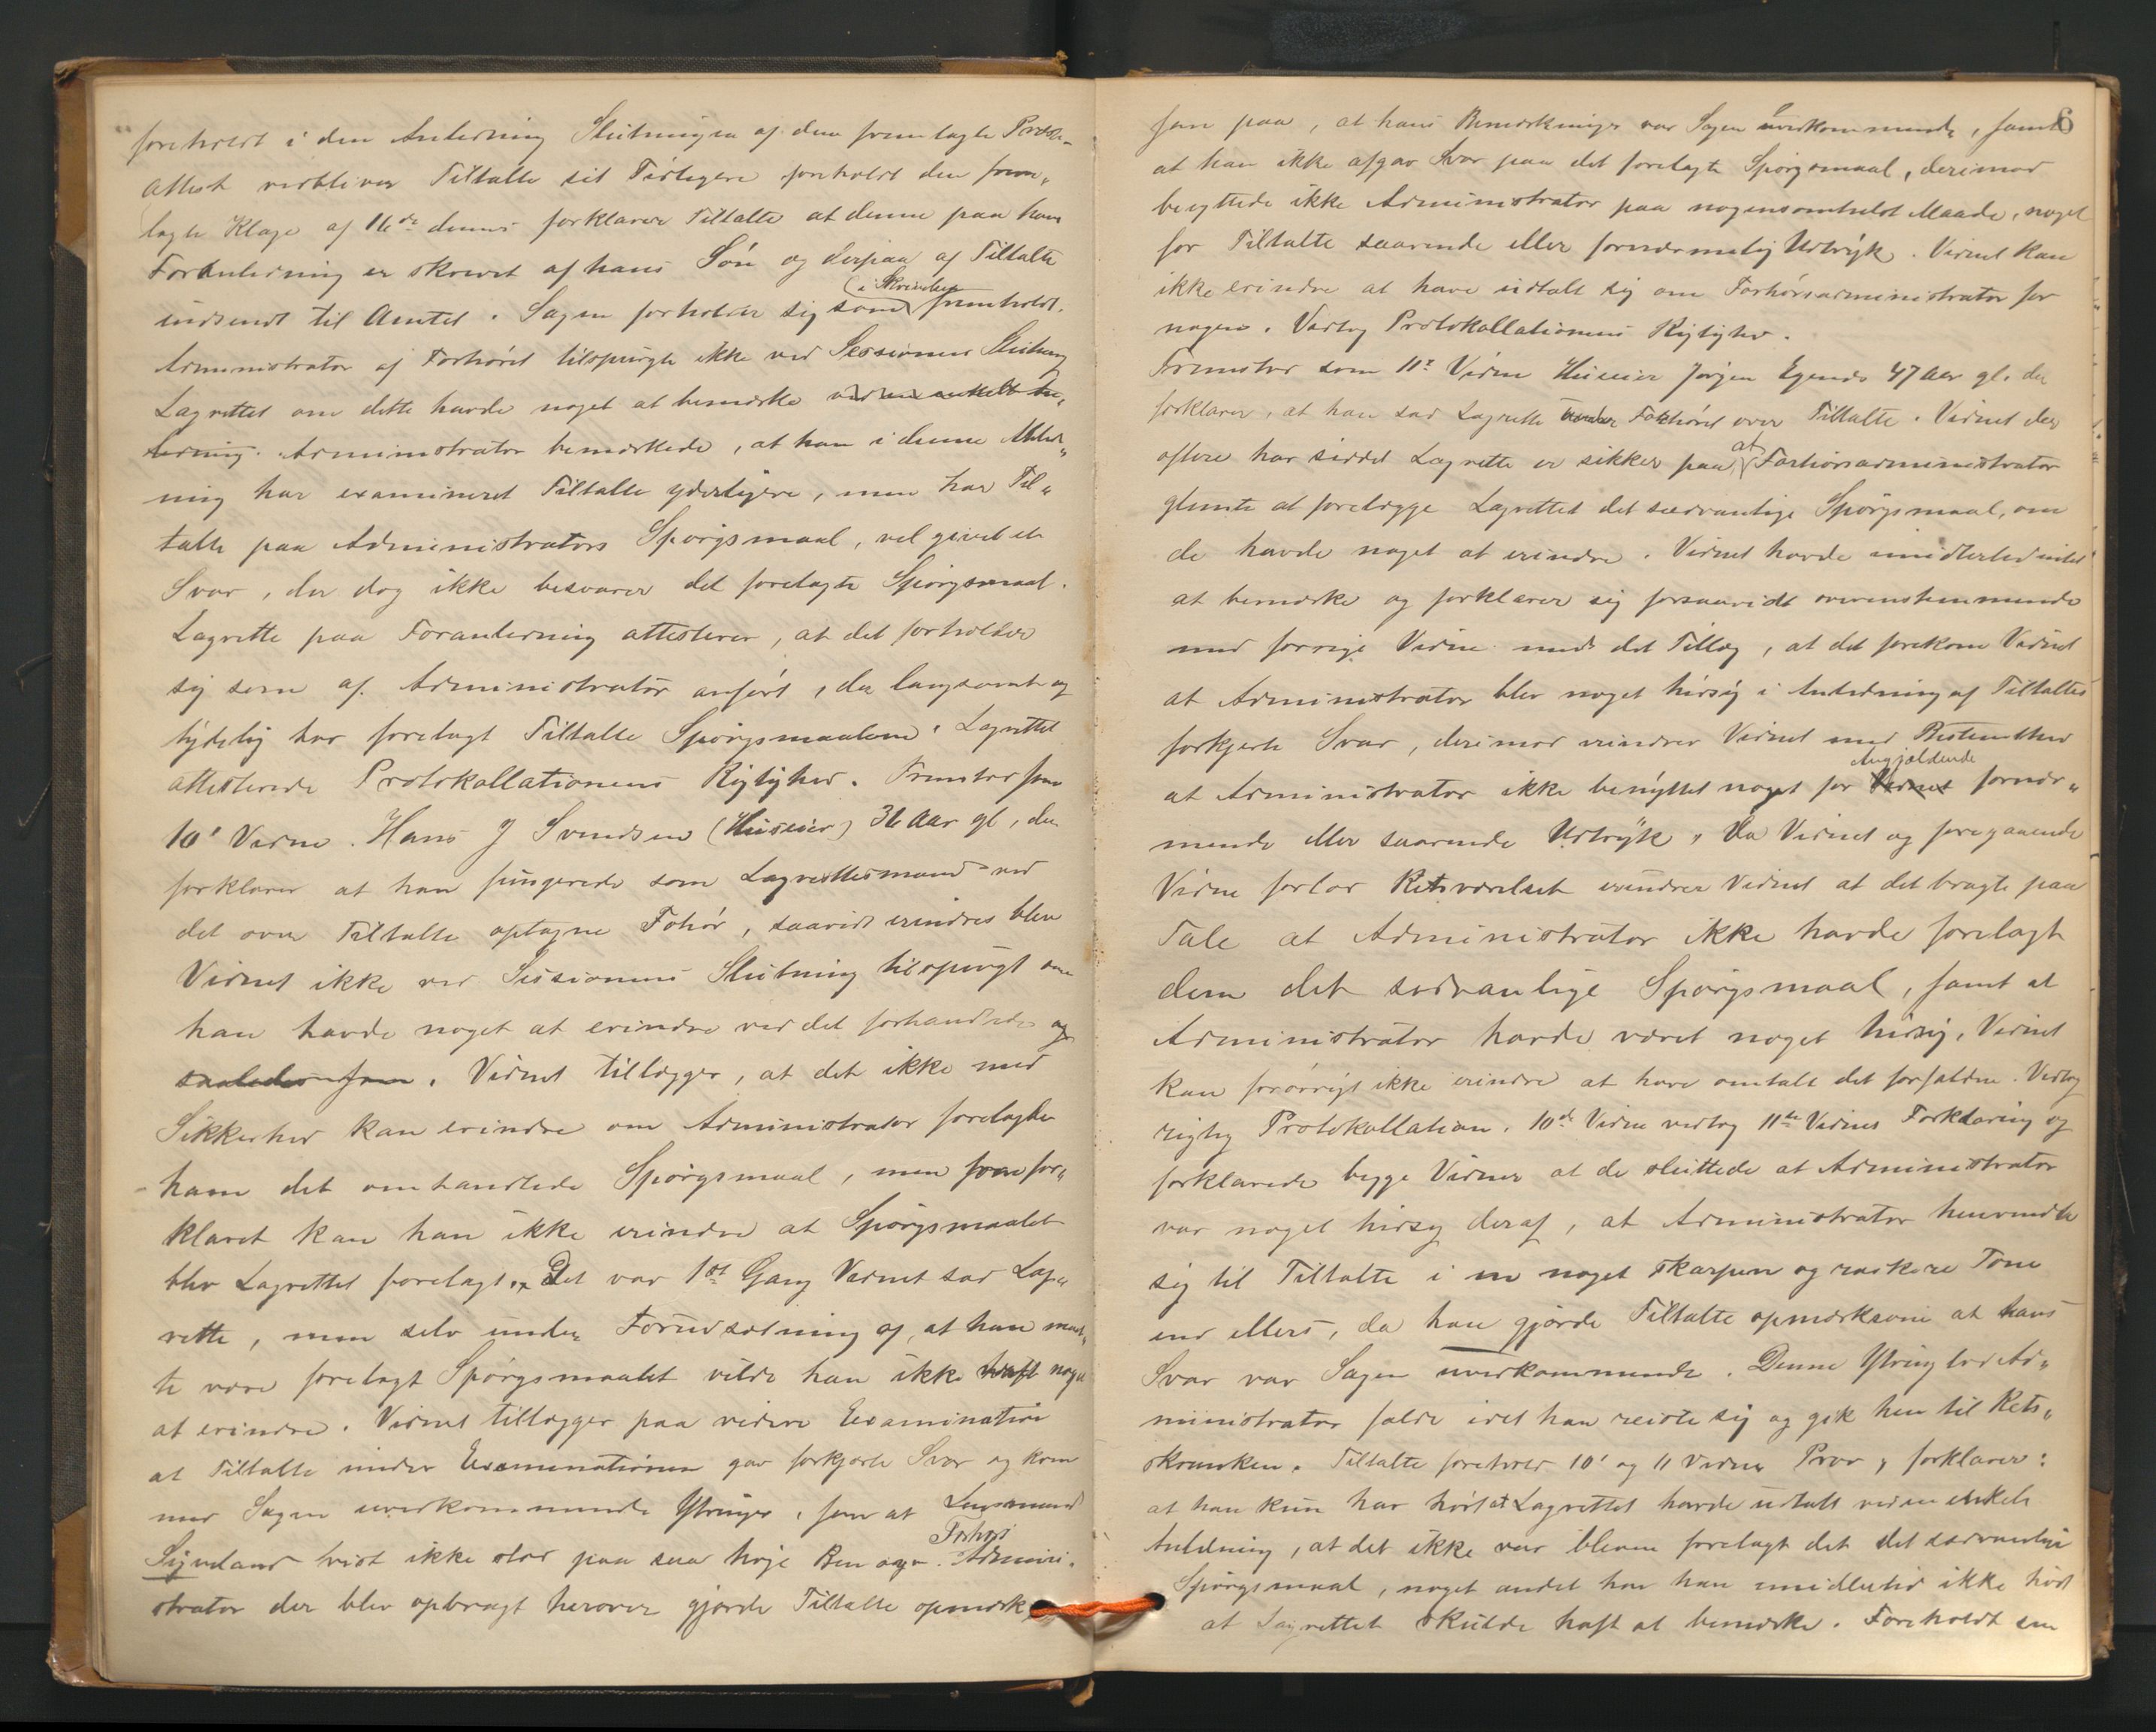 foreholdt i den Anledning Slutningen af den fremlagte Præste-
attest vedbliver Tiltalte sit Tidligere foreholdt den frem„
lagte Klage af 16de dennes forklarer Tiltalte at denne paa hans
Foranledning er skrevet af hans Søn og derpaa af Tiltalte
indsendt til Amtet. Sagen forholder sig som i Skrivelsen fremholdt.
Administrator af Forhøret tilspurgte ikke ved Sessionens Slutning
Lagrettet om dette havde noget at bemærke ved en enkelt be„
ledning. Administrator bemærkede, at han i denne Anled„
ning har examineret Tiltalte yderligere, men har Til„
talte paa Administrators Spørgsmaal, vel givet et
Svar, der dog ikke besvarer det forelagte Spørgsmaal.
Lagrette paa Foranledning attesterer, at det forholder
sig som af Administrator anført, der langsomt og
tydelig har forelagt Tiltalte Spørgsmaalene. Lagrettet
attesterede Protokollationens Rigtighed. Fremstod som
10' Vidne. Hans J Svendsen (Huseier) 36 Aar gl, der
forklarer at han fungerede som Lagrettesmand ved
det over Tiltalte optagne Fohør, saavidt erindres blev
Vidnet ikke ved Sessionens Slutning tilspurgt om
han havde noget at erindre ved det forhandlede og
saaledes frem. Vidnet tillægger, at det ikke med
Sikkerhed kan erindre om Administrator forelagde
ham det omhandlede Spørgsmaal, men som for„
klaret kan han ikke erindre at Spørgsmaalet
blev Lagrettet forelagt. Det var 1ste Gang Vidnet sad Lag„
rette, men selv under Forudsætning af, at han maat„
te være forelagt Spørgsmaalet vilde han ikke havt noget
at erindre. Vidnet tillægger paa videre Examination
at Tiltalte under Examinationen gav forkjerte Svar og kom
med Sagen uvedkommende Ytringer, som at Lensmand
Sigveland vist ikke stod paa saa høje Ben o.s.v. Forhørs Admini-
strator der blev opbragt herover gjorde Tiltalte opmærk
6
som paa, at hans Bemærkninger var Sagen uvedkommende, samt
at han ikke afgav Svar paa det forelagte Spørgsmaal, derimod
benyttede ikke Administrator paa nogensomhelst Maade, noget
for Tiltalte saarende eller fornærmelig Udtryk. Vidnet kan
ikke erindre at have udtalt sig om Forhørsadministrator for
nogen. Vedtog Protokollationens Rigtighed.
Fremstod som 11te Vidne Huseier Jørgen Egenæs 47 Aar gl. der
forklarer, at han sad Lagrette under Forhøret over Tiltalte. Vidnet der
oftere har siddet Lagrette er sikker paa at Forhørsadministrator
glemte at forelægge Lagrettet det sædvanlige Spørgsmaal, om
de havde noget at erindre. Vidnet havde imidlertid intet
at bemærke og forklarer sig forsaavidt overensstemmende
med forrige Vidne med det Tillæg, at det forekom Vidnet
at Administrator blev noget hidsig i Anledning af Tiltaltes
forkjerte Svar, derimod erindrer Vidnet med Bestemthed
at Administrator ikke benyttet noget for Vidnet Angjældende fornær„
mende eller saarende Udtryk. Da Vidnet og foregaaende
Vidne forlod Retsværelset erindrer Vidnet at det bragte paa
Tale at Administrator ikke havde forelagt
dem det sædvanlige Spørgsmaal, samt at
Administrator havde været noget hidsig. Vidnet
kan forøvrigt ikke erindre at have omtalt det forfaldne. Vedtog
rigtig Protokollation. 10de Vidne vedtog 11te Vidnes Forklaring og
forklarede begge Vidner at de sluttede at Administrator
var noget hidsig deraf, at Administrator henvendte
sig til Tiltalte i en noget skarpere og raskere Tone
end ellers, da han gjorde Tiltalte opmærksom at hans
Svar var Sagen uvedkommende. Denne Ytring lod Ad„
ministrator falde idet han reiste sig og gik hen til Rets„
skranken. Tiltalte foreholdt 10' og 11 Vidnes Prov, forklarer:
at han kun har hørt at Lagrettet havde udtalt ved en enkelt
Anledning, at det ikke var bleven forelagt det det sædvanlige
Spørgsmaal, noget andet har han imidlertid ikke hørt
at Lagrettet skulde haft at bemærke. Foreholdt sin